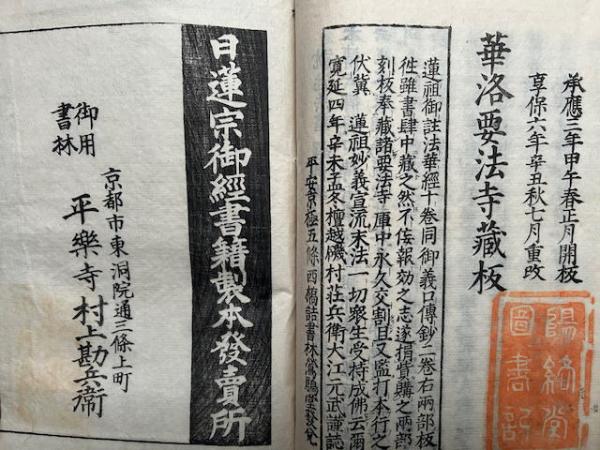 承應三年甲午春正月開板
享保六年辛丑秋七月重改
華洛要法寺藏板
蓮祖御註法華經十卷同御義口傳鈔二卷右兩部板
徃雖書肆中藏之然不侫報効之志遂捐貲購之兩部
刻板奉藏諸要法寺庫中永久交割且又濫打本行之
伏冀 蓮祖妙義宣流末法一切衆生受持成佛云爾
寛延四年辛未孟冬檀越磯村莊兵衛大江元武謹誌
平安京極五條西橋詰書林
日蓮宗御經書籍製本發賣所
京都市東洞院通三條上町
御用
書林
平樂寺村上勘兵衛
圖書記